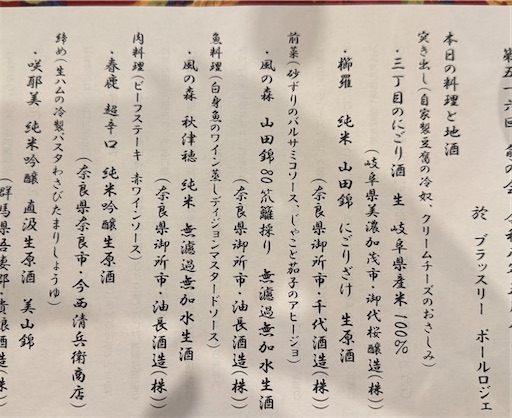 於 ブラッスリー ポールロジェ
本日の料理と地酒
突き出し(自家製豆腐の冷奴・クリームチーズのおさしみ)
・三丁目のにごり酒 生 岐阜県産米100%
(岐阜県美濃加茂市・御代桜醸造(株)
・櫛羅 純米 山田錦 にごりざけ 生原酒
(奈良県御所市・千代酒造(株)
前菜(砂ずりのバルサミコソース、じゃこと茄子のアヒージョ)
・風の森 山田錦 80 笊籬採り 無濾過無加水生酒
(奈良県御所市・油長酒造(株)
魚料理(白身魚のワイン蒸しディジョンマスタードソース)
・風の森 秋津穂 純米 無濾過無加水生酒
(奈良県御所市・油長酒造(株)
肉料理(ビーフステーキ 赤ワインソース)
・春鹿 超辛口 純米吟醸生原酒
(奈良県奈良市・今西清兵衛商店)
締め(生ハムの冷製パスタわさびたまりしょうゆ)
・咲耶美 純米吟醸 直汲生原酒 美山錦
(群馬県吾妻郡・貴娘酒造(株)